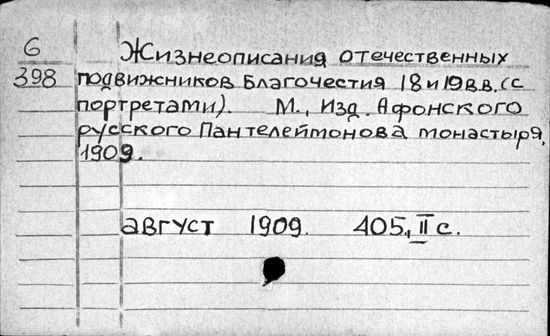 6
398
Жизнеописания отечественных
подвижников благочестия 18 и 19 в.в. (с
портретами). М., Изд. Афонского
русского Пантелеймонова монастыря,
1909.
август 1909. 405, II с.